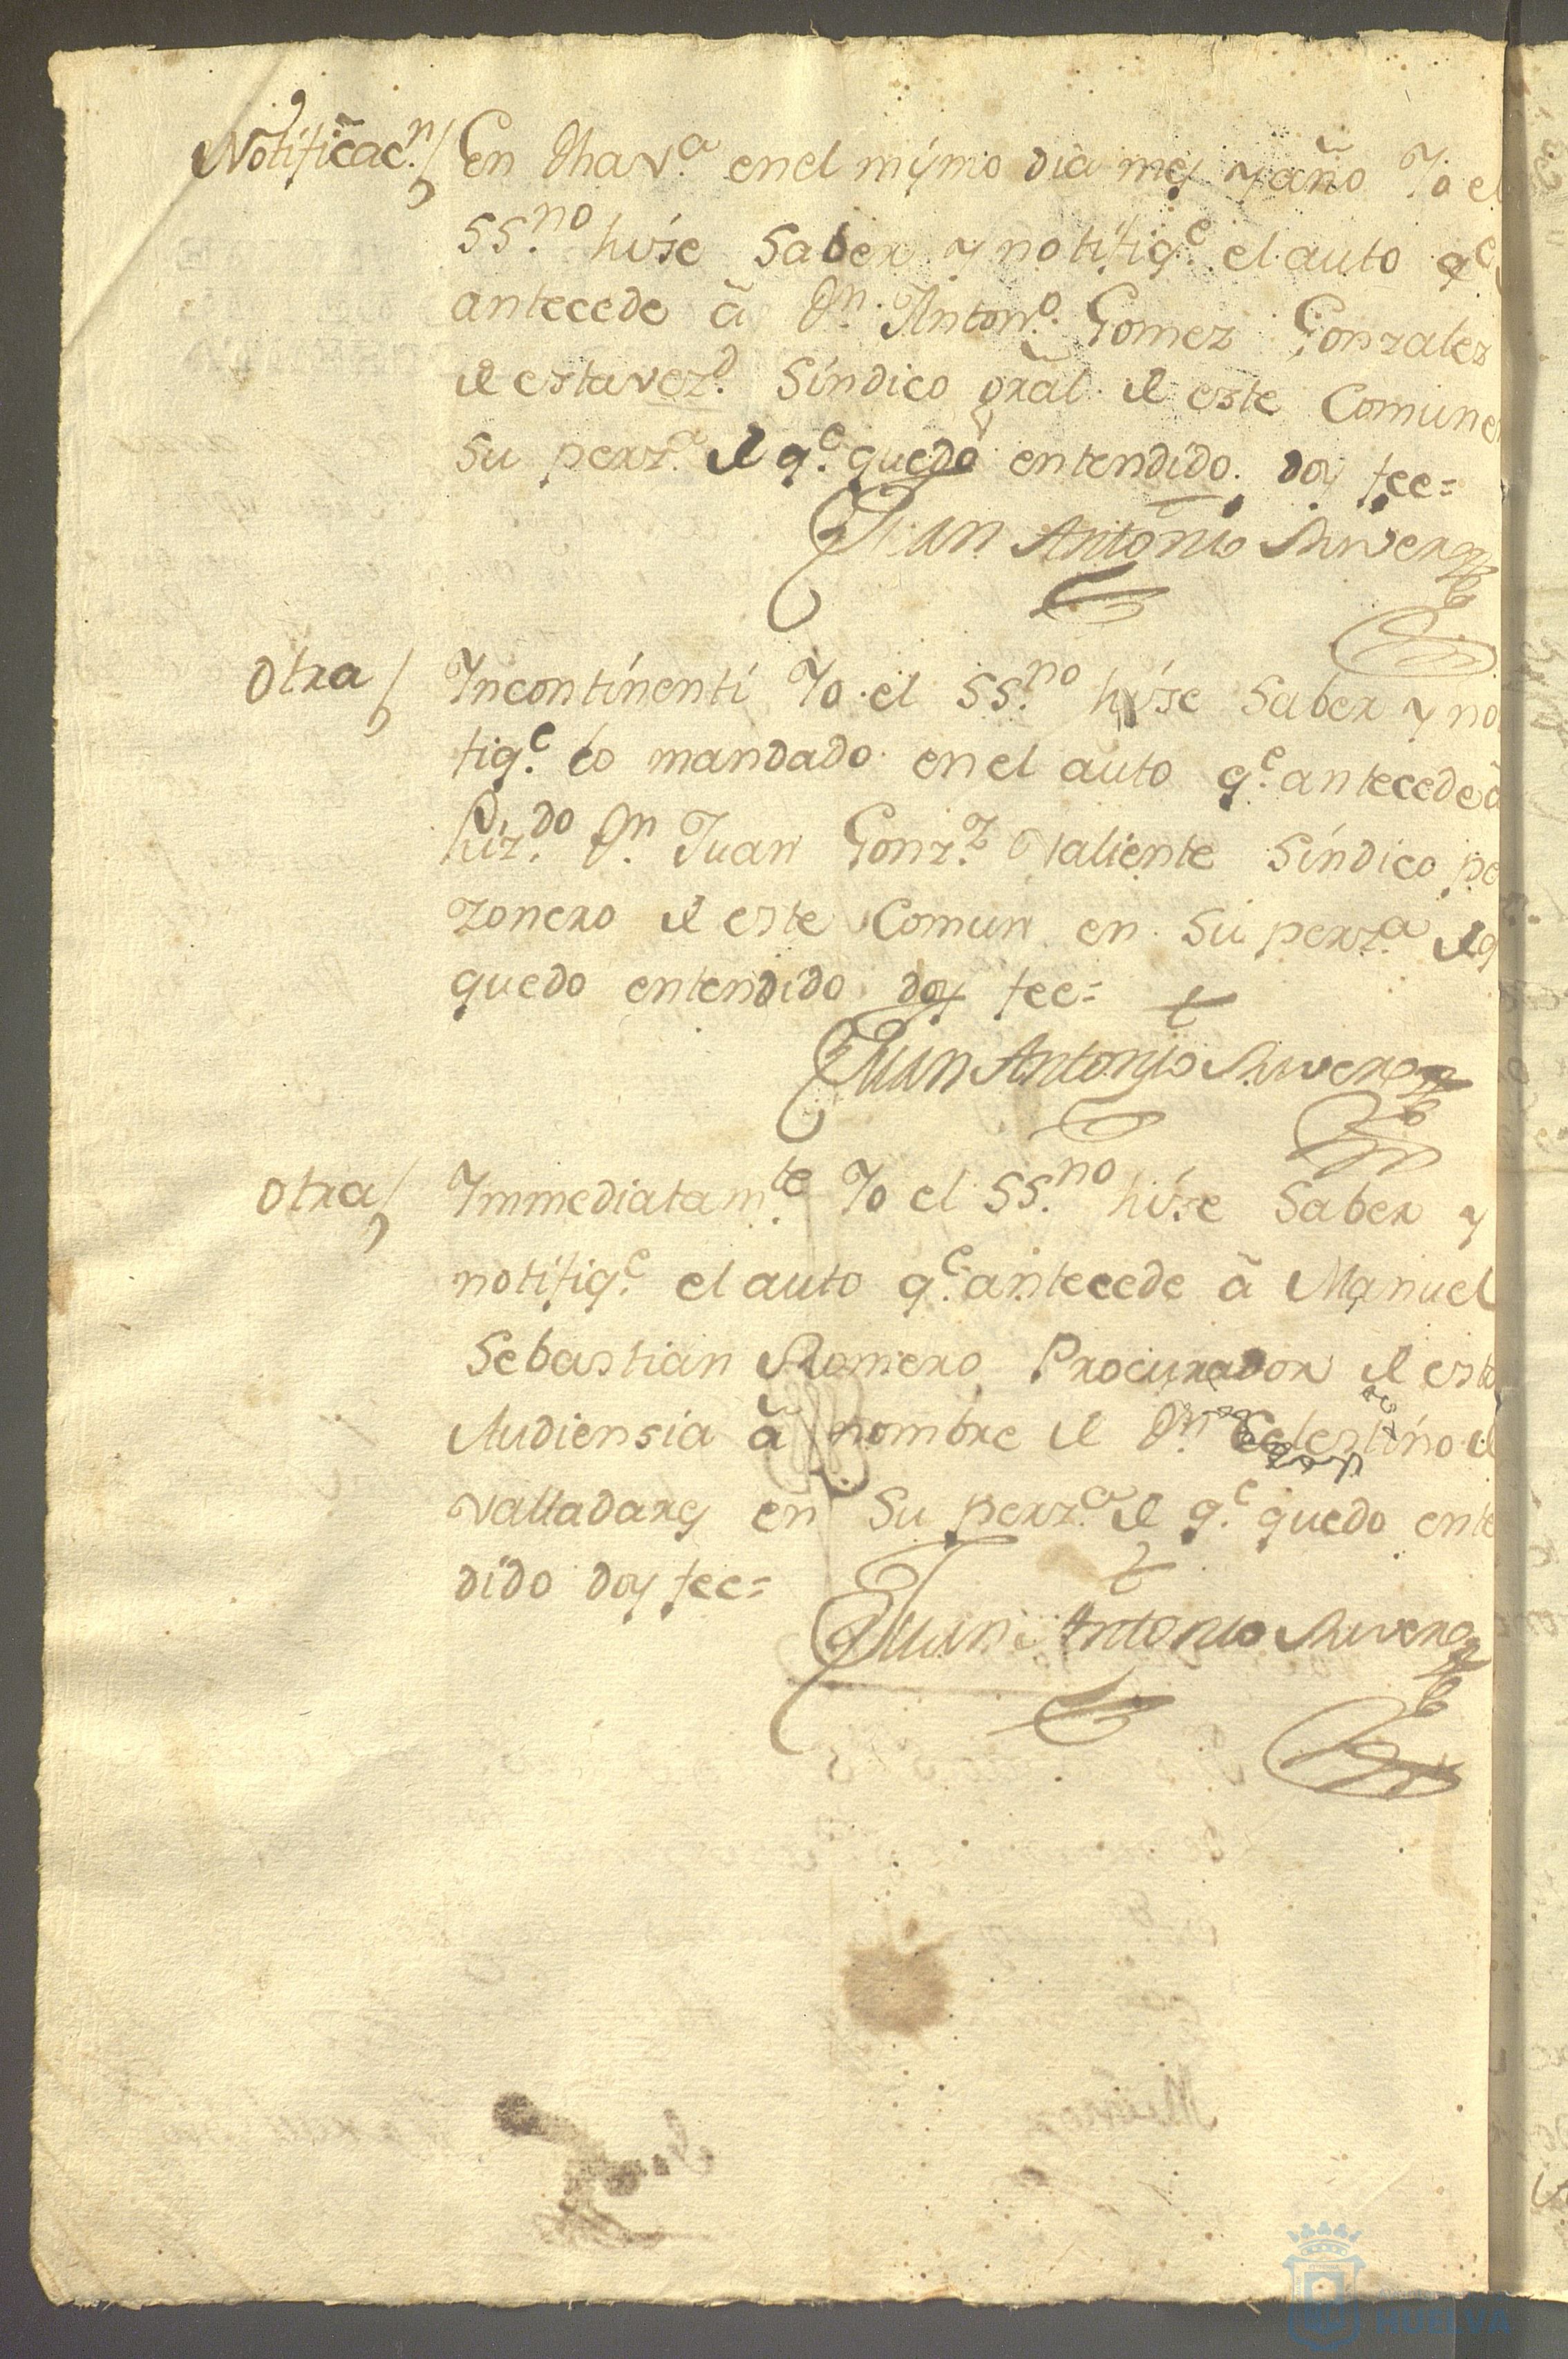 Notificac.n / En dha v.a en el mismo dia mes y año Yo el
SS.no hise Saber y notifiq.e el auto q.e
antecede â Dn. Anton.o Gomez Gonzales
de esta vez.d Síndico gral de este Comun en
su perz.a de q.e quedó entendido. doy fee=
Juan Antonio Rivera
Otra / Incontinenti Yo el SS.no hise Saber y no
tifiq.e lo mandado en el auto q.e antecede â
Liz.do Dn. Juan Gonz.z Valiente Síndico per
zonero de este Comun en su perz.a de q
quedo entendido doy fee=
Juan Antonio Rivera
Otra / Immediatam.te Yo el SS.no hise Saber y
notifiq.e el auto q.e antecede â Manuel
Sebastian Romero Procurador de esta
Audiensia â nombre de Dn. Selestino de
valladares en su perz.a de q.e quedo enten
dido doy fee=
Juan Antonio Rivera
HUELVA